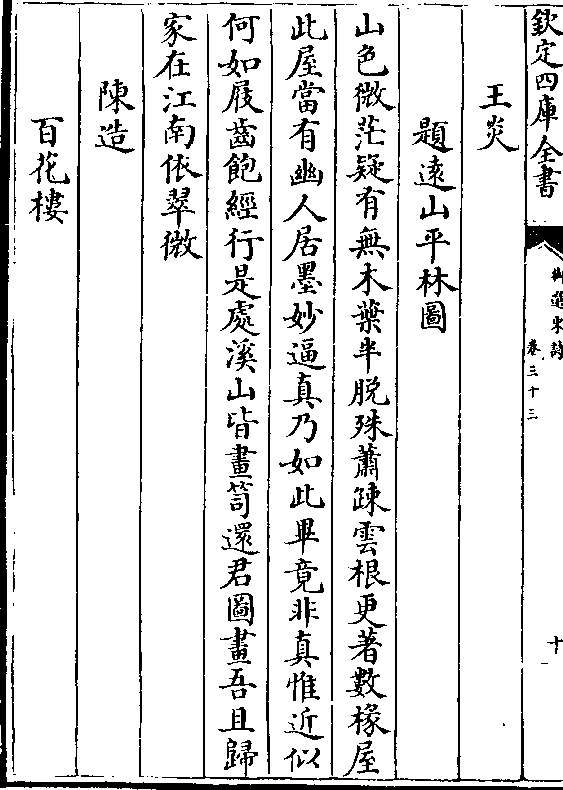 欽定四庫全書
御選宋詩
卷三十三
十
王炎
題遠山平林圖
山色微茫疑有無木葉半脱殊蕭踈雲根更著數椽屋
此屋當有幽人居墨妙逼真乃如此畢竟非真惟近似
何如屐齒飽經行是處溪山皆畫笥還君圖畫吾且歸
家在江南依翠微
陳造
百花樓